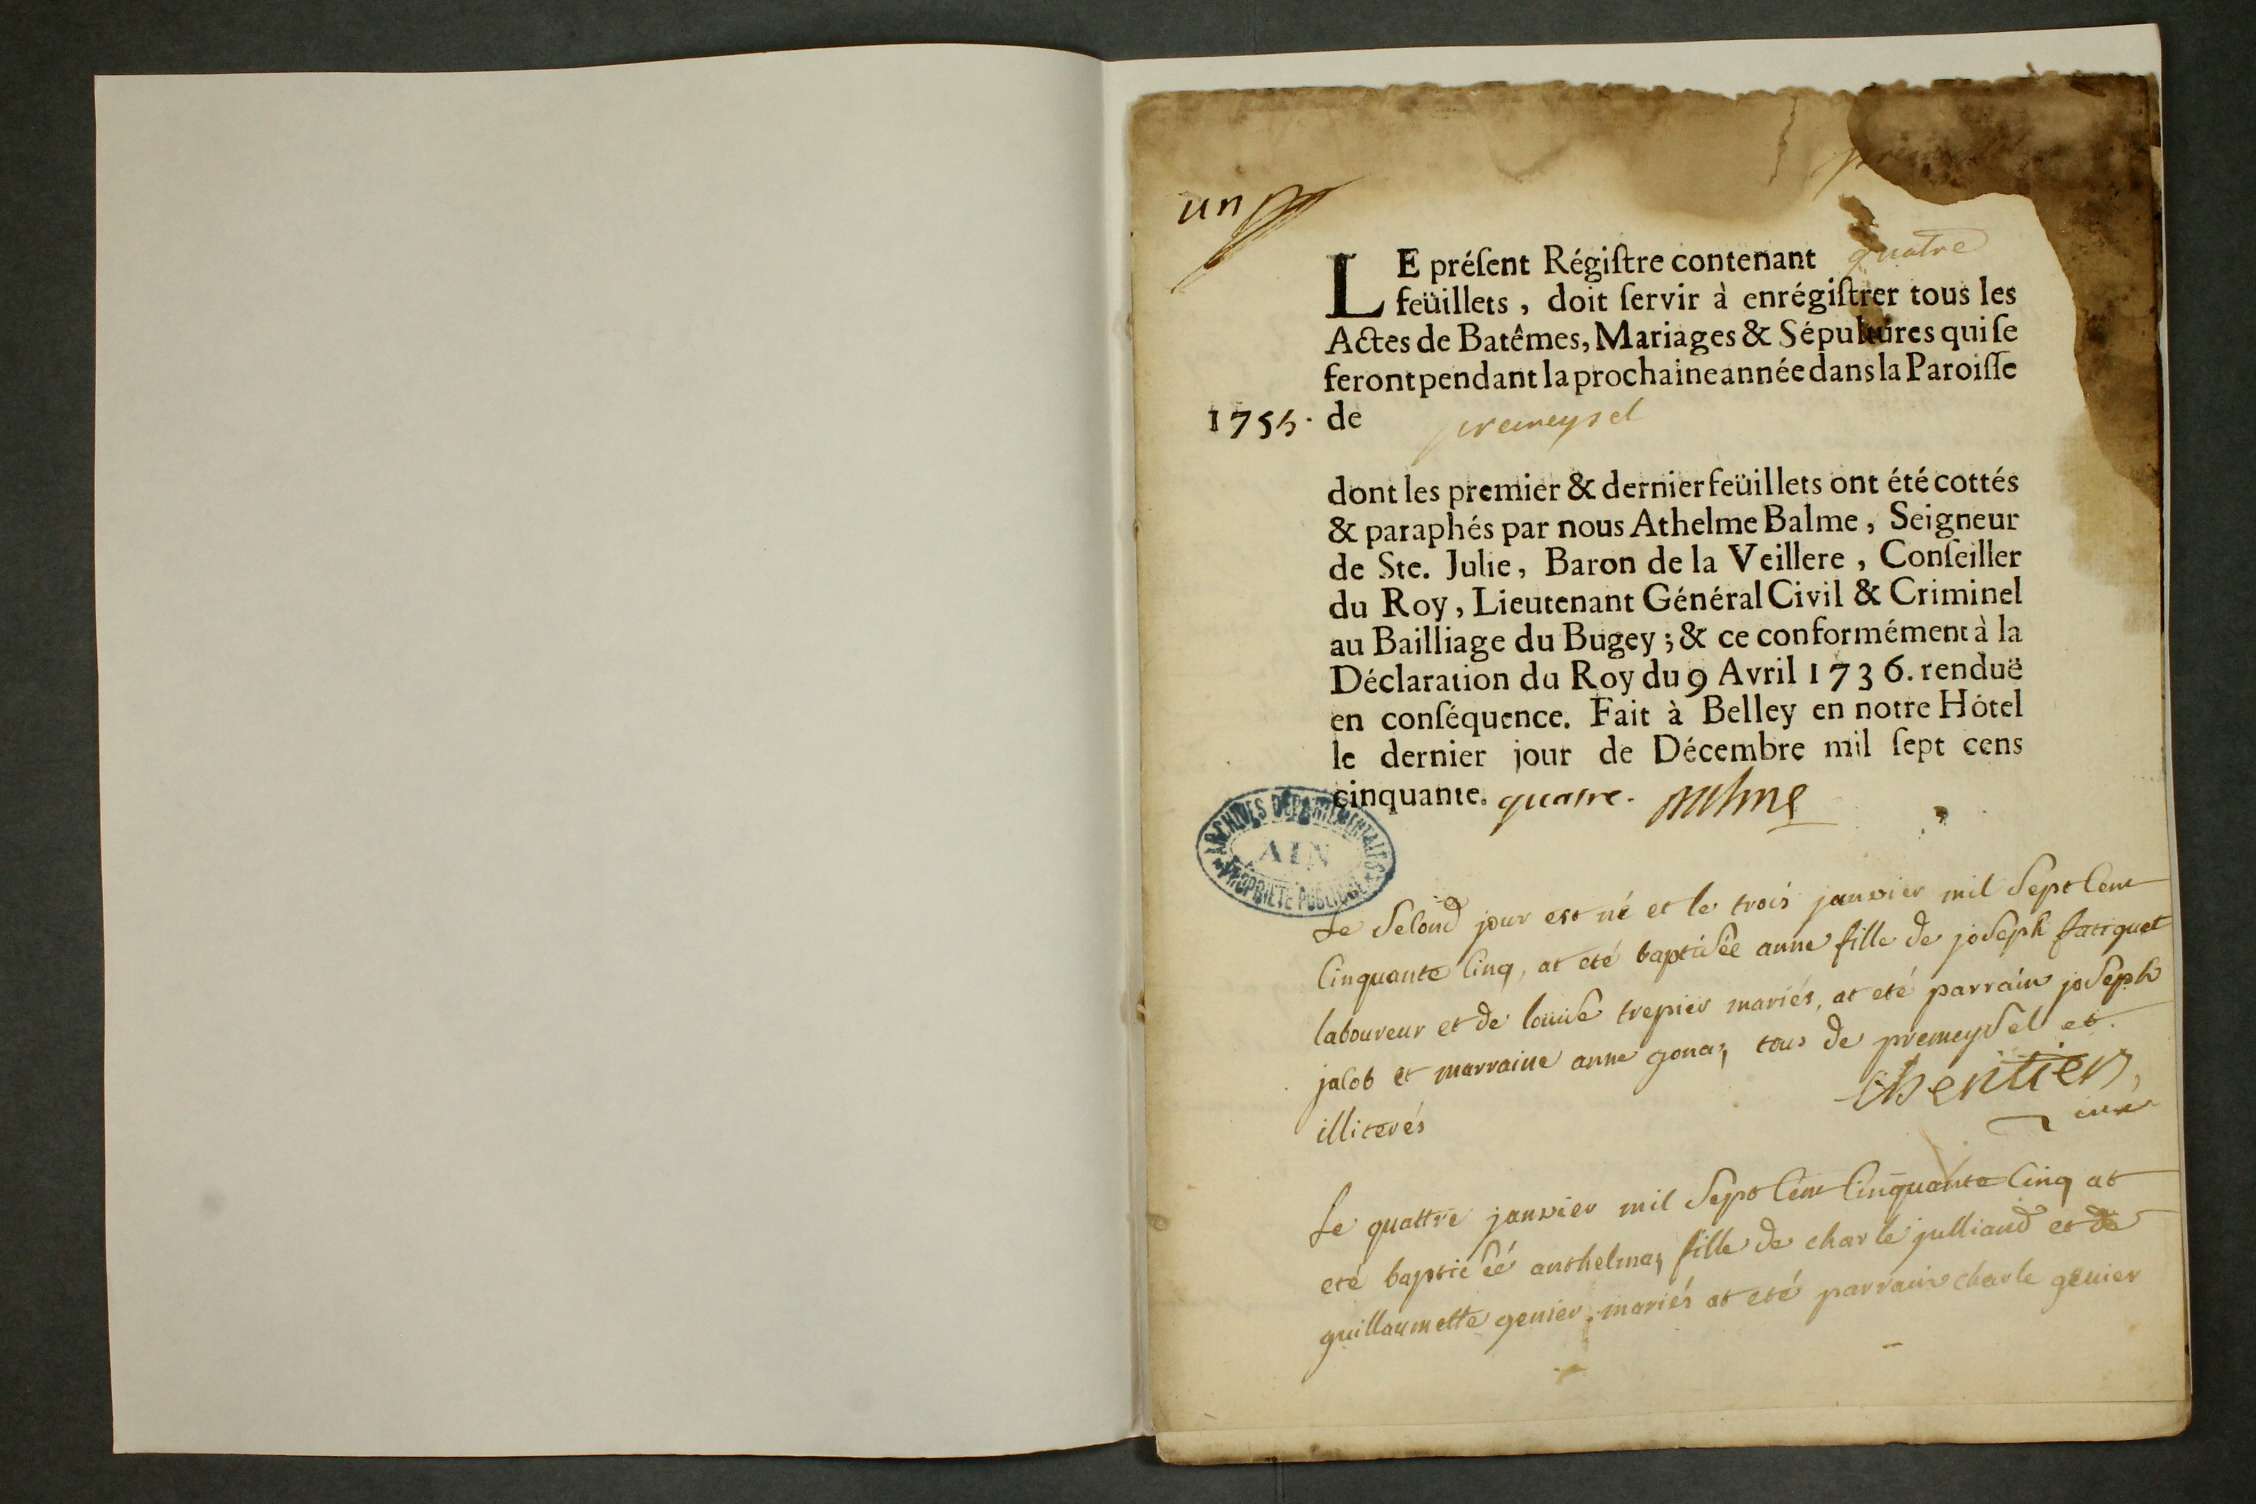 un
LE préſent Régiſtre contenant quatre
feüillets, doit ſervir à enrégiſtrer tous les
Actes de Batêmes, Mariages & Sépultures qui ſe
feront pendant la prochaine année dans la Paroiſſe
1755. de premeysel
dont les premier & dernier feüillets ont été cottés
& paraphés par nous Athelme Balme, Seigneur
de Ste. Julie, Baron de la Veillere, Conſeiller
du Roy, Lieutenant Général Civil & Criminel
au Bailliage du Bugey; & ce conformément à la
Déclaration du Roy du 9 Avril 1736. renduë
en conſéquence. Fait à Belley en notre Hôtel
le dernier jour de Décembre mil ſept cens
cinquante. quatre. Balme
ARCHIVES DÉPARTEMENTALES
AIN
PROPRIÉTÉ PUBLIQUE
Le second jour est né et le trois janvier mil sept cent
cinquante cinq, at eté baptisée anne fille de joseph fatiguet
laboureur et de louise trepier mariés, at eté parrain joseph
jacob et marraine anne gonaz tous de premeysel et
illiterés
curé
Le quattre janvier mil sept cent cinquante cinq at
eté baptiséé anthelmaz fille de charle julliand et de
guillaumette genier mariés at eté parrain charle genier